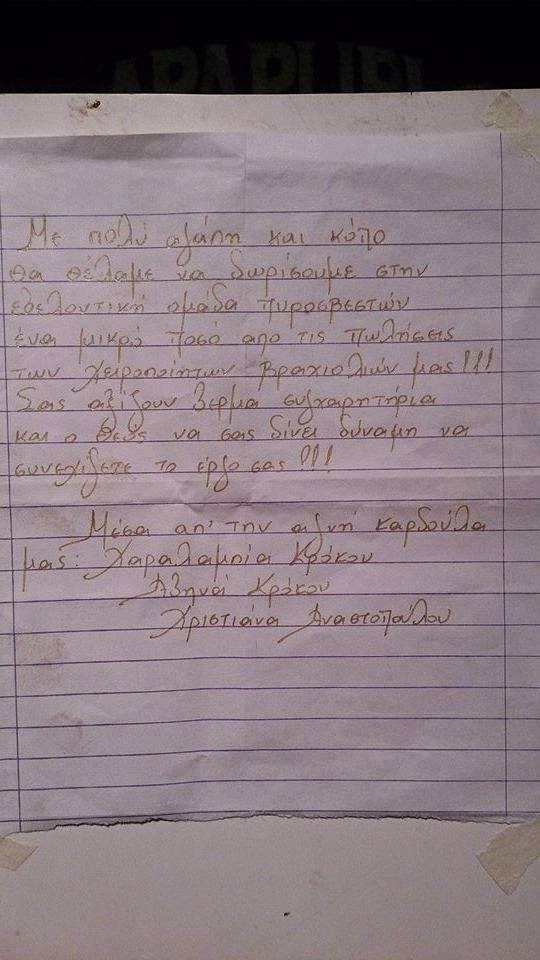 Με πολύ αγάπη και κόπο
θα θέλαμε να δωρίσουμε στην
εθελοντική ομάδα πυροσβεστών
ένα μικρό ποσό απο τις πωλήσεις
των χειροποίητων βραχιολιών μας!!!
Σας αξίζουν θερμα συγχαρητήρια
και ο Θεός να σας δίνει δύναμη να
συνεχίζετε το έργο σας!!!
Μέσα απ' την αγνή καρδούλα
μας: Χαραλαμπία Κρόκου
Αθηνά Κρόκου
Χριστιάνα Αναστοπούλου